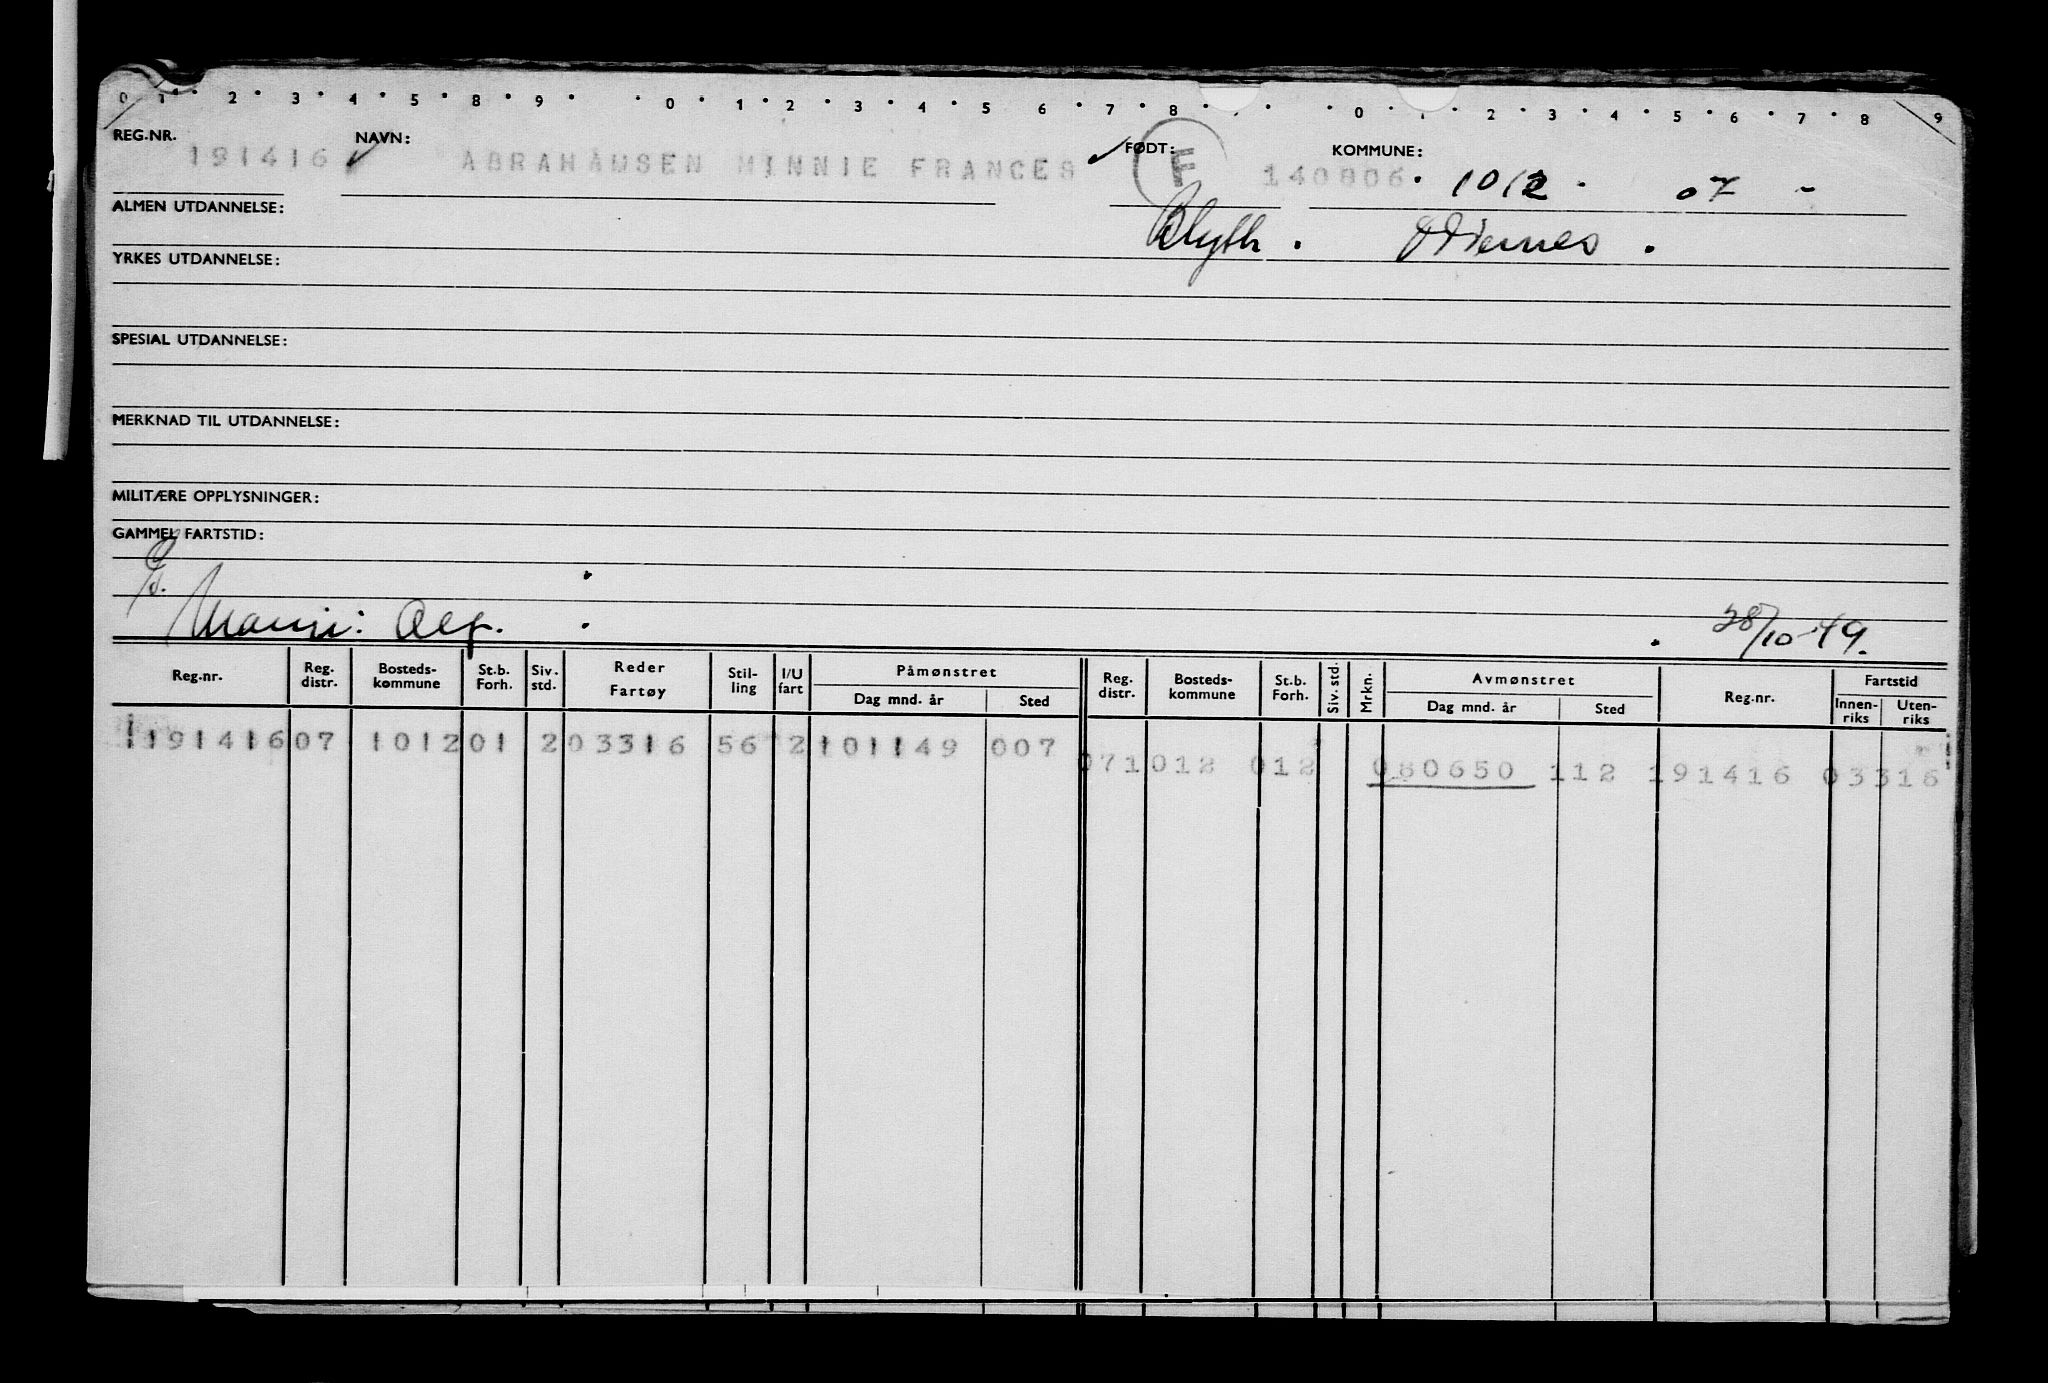 0 1 2 3 4 5 8 9 0 1 2 3 4 5 6 7 8 0 1 2 3 4 5 6 7 8 9
REG.NR. NAVN: FØDT: KOMMUNE:
191416 ABRAHAMSEN MINNIE FRANCES F 140806 1012 07 -
ALMEN UTDANNELSE: Blyth.
YRKES UTDANNELSE:
SPESIAL UTDANNELSE:
MERKNAD TIL UTDANNELSE:
MILITÆRE OPPLYSNINGER:
GAMMEL FARTSTID:
28/10-49.
Reg.nr. Reg. distr. Bosteds-kommune St.b. Forh. Siv. std. Reder Fartøy Stil-ling I/U fart Påmønstret Dag mnd. år Sted Reg. distr. Bosteds-kommune St.b. Forh. Siv. std. Mrkn. Avmønstret Dag mnd. år Sted Reg.nr. Fartstid Innen-riks Uten-riks
119141607 101201 203316 56 2101149 007
071012 012 080650 112 191416 03316